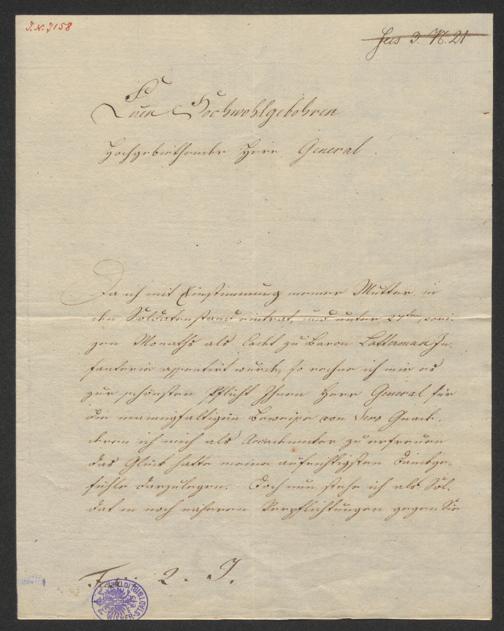 J. N. 3158
Euer Hochwohlgebohren
Hochgebiethender Herr General
Da ich mit Einstimmung meiner Mutter in
den Soldatenstand eintrat, und unter 27ten vori-
gen Monaths als Cadet zu Baron Latterman In-
fanterie assentirt wurde, so rechne ich mir es
zur schönsten Pflicht Ihnen Herr General für
die mannigfaltigen Beweise von Gnade
deren ich mich als zu erfreuen
das Glück hatte meine aufrichtigsten Dankge-
fühle darzulegen. Doch nun stehe ich als Sol-
dat in noch näheren Verpflichtungen gegen Sie